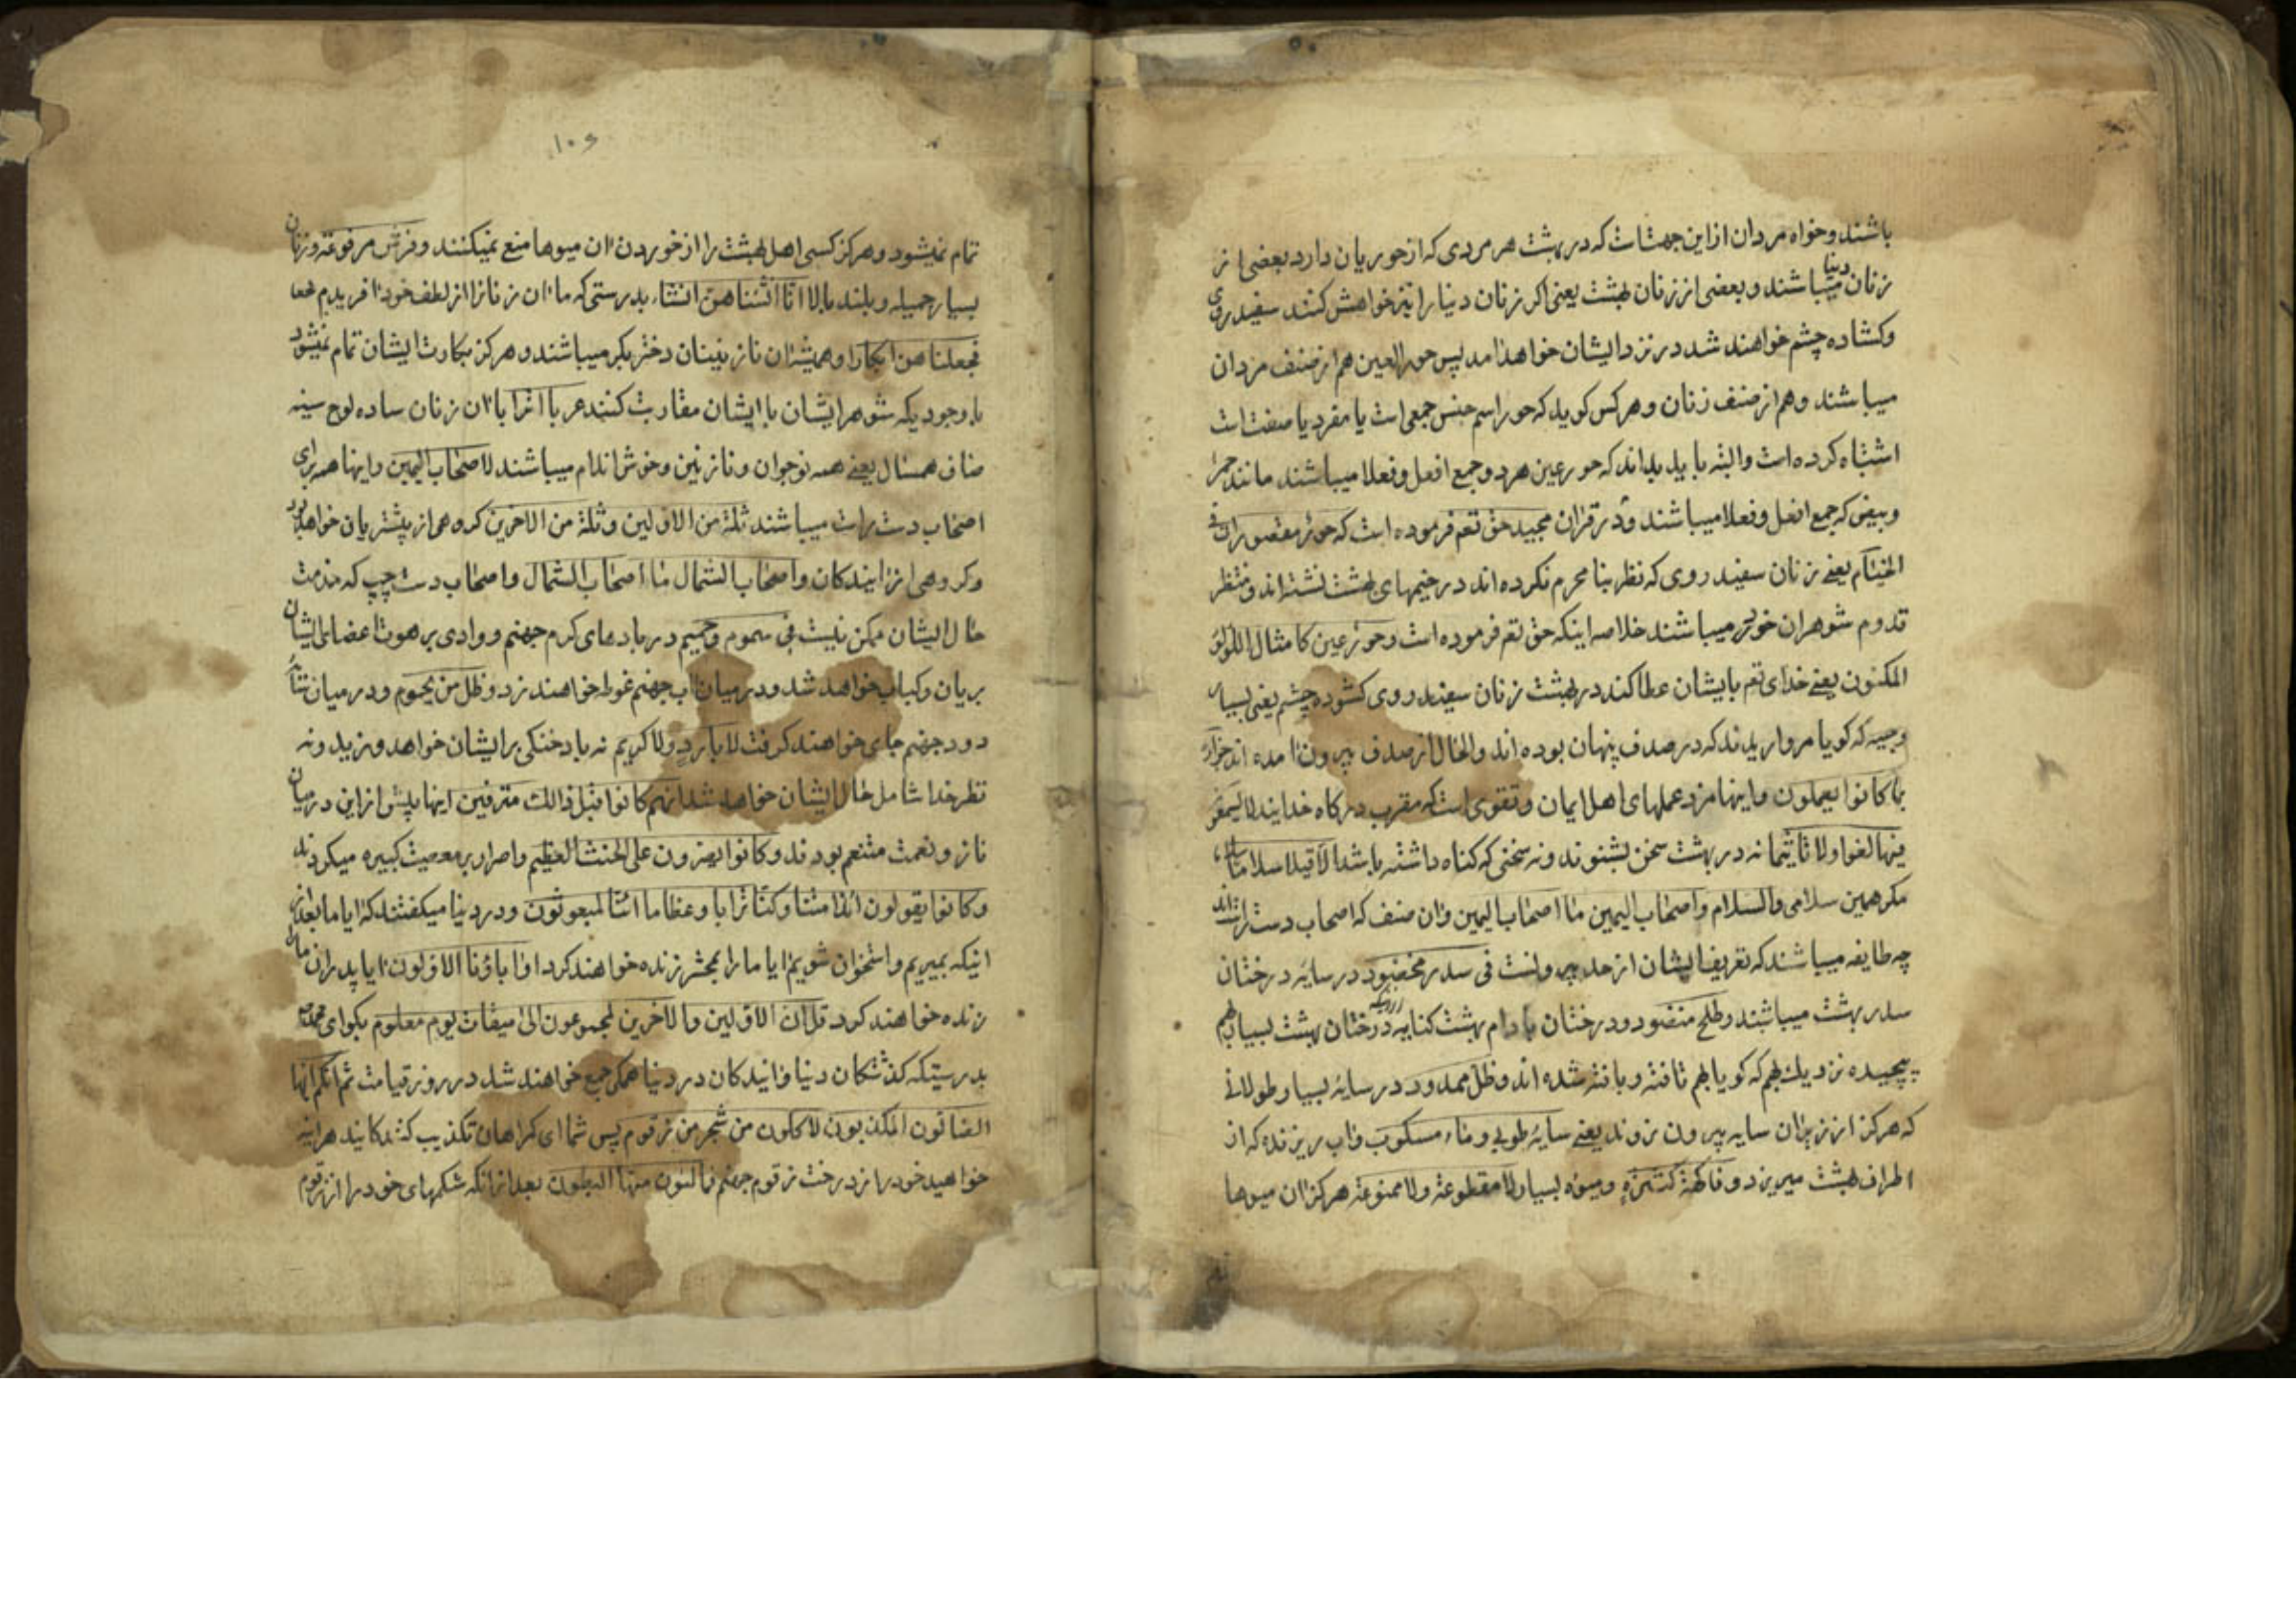 باشند و خواه مردان از این جهت است که در بهشت هر مردی که از حوریان دارد بعضی از
زنان دنیا میباشند و بعضی از زنان بهشت یعنی اکر زنان دنیا را نیز خواهش کنند سفید روی
وکشاده چشم خواهند شد در نزد ایشان خواهد امد پس حور العین هم از صنف مردان
میباشند و هم از صنف زنان و هر کس کوید که حور اسم جنس جمعی است یا مفرد یا صفت است
اشتباه کرده است و البته باید بداند که حور عین هر دو جمع افعل و فعلا میباشند مانند حمر
وبیض که جمع افعل و فعلا میباشند و در قران مجید حق تعم فرموده است که حور مقصورات فی
الخیام یعنی زنان سفید روی که نظر بنا محرم نکرده اند در خیمهای بهشت نشته اند و منتظر
قدوم شوهران خود میباشند خلاصه اینکه حق تعم فرموده است و حور عین کامثال اللؤلؤ
المکنون یعنی خدای تعم بایشان عطا کند در بهشت زنان سفید روی کشوده چشم یعنی بسیار
وجیه که کویا مروارید ند که در صدف پنهان بوده اند والحال از صدف بیرون امده اند جزاء
بما کانوا یعملون واینها مزد عملهای اهل ایمان و تقوی است که مقرب درکاه خدایند لا یسمعون
فیها لغوا ولا تاثیما نه در بهشت سخن بشنوند و نه سخنی که کناه داشته باشد الا قیلا سلاما سلاما
مکر همین سلامی والسلام واصحاب الیمین ما اصحاب الیمین وان صنف که اصحاب دست راست اند
چه طایفه میباشند که تعریف ایشان از حد بیرونست فی سدر مخضود در سایه درختان
سدر بهشت میباشند و طلح منضود و درختان بادام بهشت کنایه درختان بهشت بسیار بهم
پیچیده نزدیك بهم که کویا بهم تافته و بافته شده اند وظل ممدود در سایه بسیار طولانی
که هرکز از زیر ان سایه بیرون نروند یعنی سایه طوبی وماء مسکوب واب ریزنده که از
اطراف بهشت میریزد وفاکهة کثیرة ومیوه بسیار لا مقطوعة ولا ممنوعة هرکز ان میوها
۱۰۶
تمام نمیشود و هرکز کسی اهل بهشت را از خوردن ان میوها منع نمیکنند وفرش مرفوعة وزنان
بسیار جمیله و بلند بالا انا انشئناهن انشاء بدرستی که ما ان زنانرا از لطف خود افریدیم
فجعلناهن ابکارا وهمیشه ان نازنینان دختر بکر میباشند و هرکز بکارت ایشان تمام نمیشود
با وجودیکه شوهر ایشان با ایشان مقاربت کنند عربا اترابا ان زنان ساده لوح سینه
صاف همسال یعنی همه نوجوان و نازنین و خوش اندام میباشند لاصحاب الیمین واینها همه برای
اصحاب دست راست میباشند ثلة من الاولین وثلة من الاخرین کروهی از پیشتریان خواهد بود
وکروهی از ایندکان واصحاب الشمال ما اصحاب الشمال واصحاب دست چپ که
حال ایشان ممکن نیست فی سموم وحمیم در بادهای کرم جهنم و وادی برهوت اعضای ایشان
بریان و کباب خواهد شد و در میان اب جهنم غوطه خواهند زد وظل من یحموم و در میان
دود جهنم جای خواهند کرفت لا بارد ولا کریم نه باد خنکی بر ایشان خواهد وزید و نه
نظر خدا شامل حال ایشان خواهد شد انهم کانوا قبل ذالك مترفین اینها پیش از این در میان
ناز و نعمت متنعم بودند وکانوا یصرون علی الحنث العظیم واصرار بر معصیت کبیره میکردند
وکانوا یقولون ائذا متنا وکنا ترابا وعظاما ائنا لمبعوثون و در دنیا میکفتند که ایا ما بعد از
اینکه بمیریم و استخوان شویم ایا ما را بمحشر زنده خواهند کرد اواباؤنا الاولون ایا پدران ما را
زنده خواهند کرد قل ان الاولین والاخرین لمجموعون الی میقات یوم معلوم بکو ای محمد
بدرستیکه کذشتکان دنیا وایندکان در دنیا همکی جمع خواهند شد در روز قیامت ثم انکم ایها
الضالون المکذبون لاکلون من شجر من زقوم پس شما ای کمراهان تکذیب کنندکانید هراینه
خواهید خورد از درخت زقوم جهنم فمالئون منها البطون بعد از انکه شکمهای خود را از زقوم